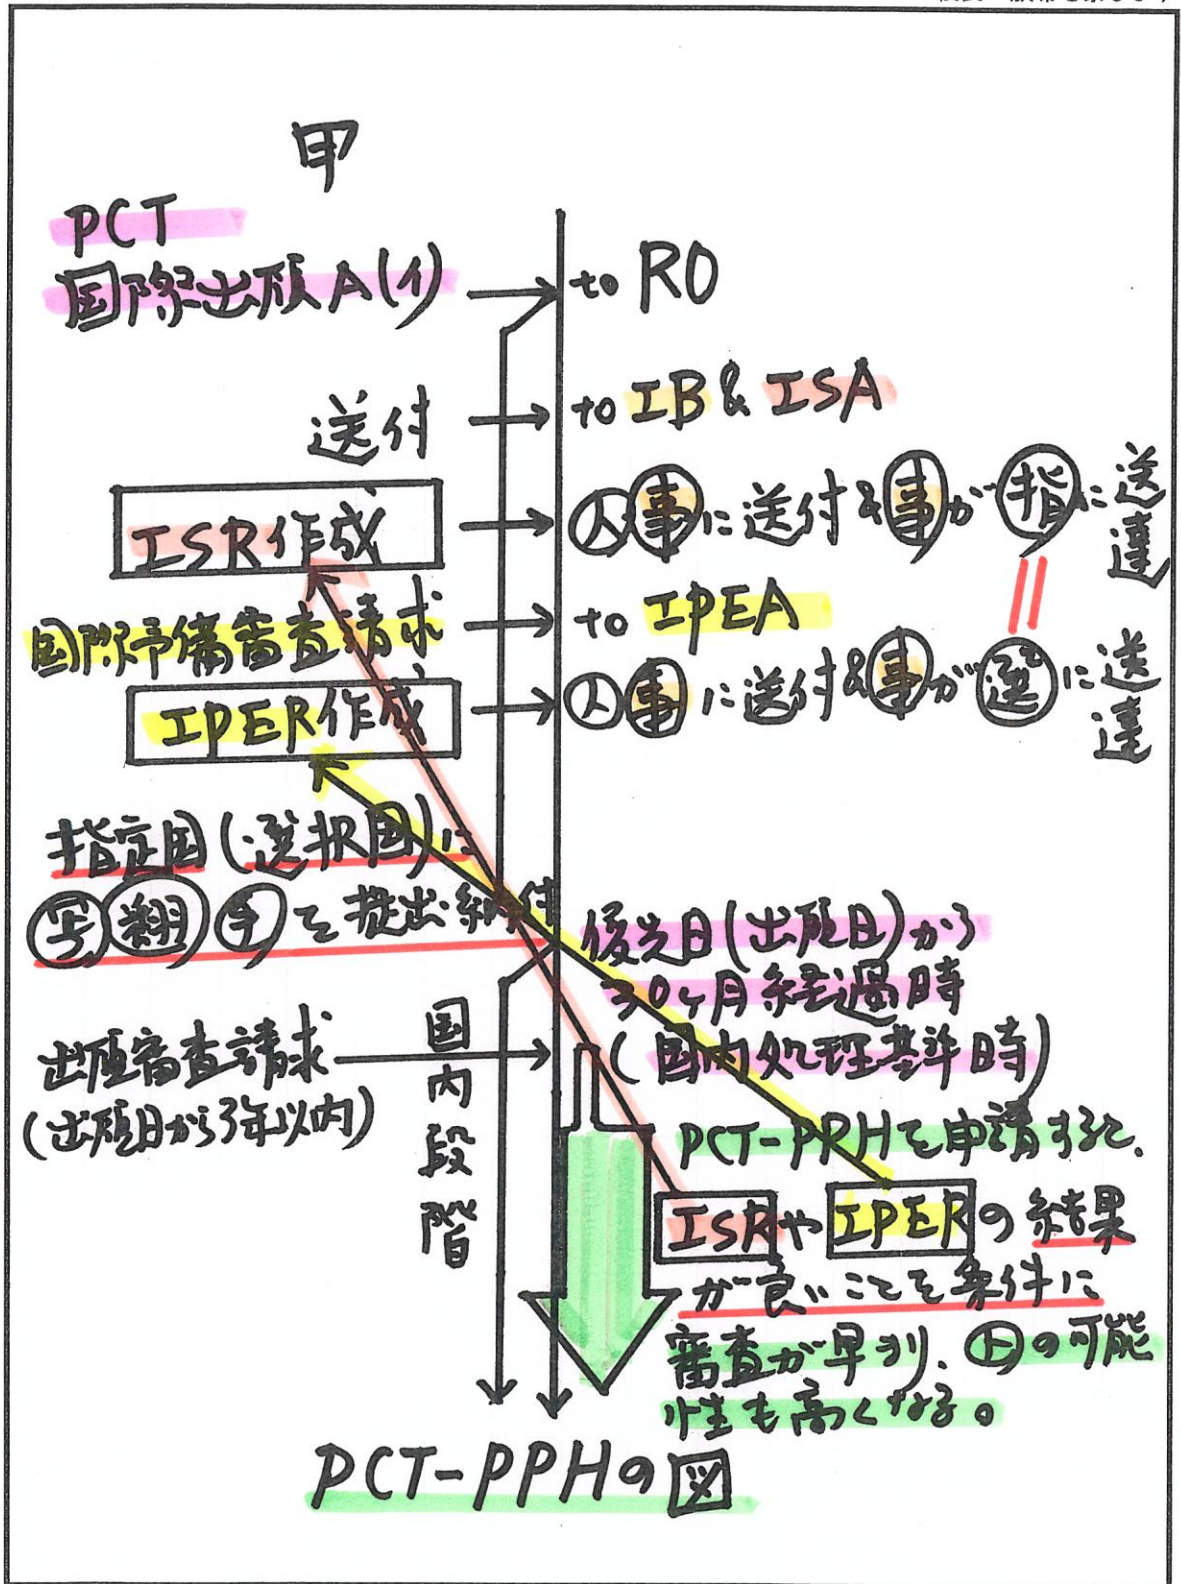 甲
PCT
国際出願A(イ) → to RO
送付 → to IB & ISA
ISR作成 → 人 事に送付&事が指に送達
国際予備審査請求 → to IPEA
IPER作成 → 人 事に送付&事が選に送達
指定国(選択国)に
写 翻 手を提出 納付
優先日(出願日)から
30ヶ月経過時
(国内処理基準時)
出願審査請求
(出願日から3年以内)
国内段階
PCT-PPHを申請すると、
ISRやIPERの結果
が良いことを条件に
審査が早まり、の可能
性も高くなる。
PCT-PPHの図